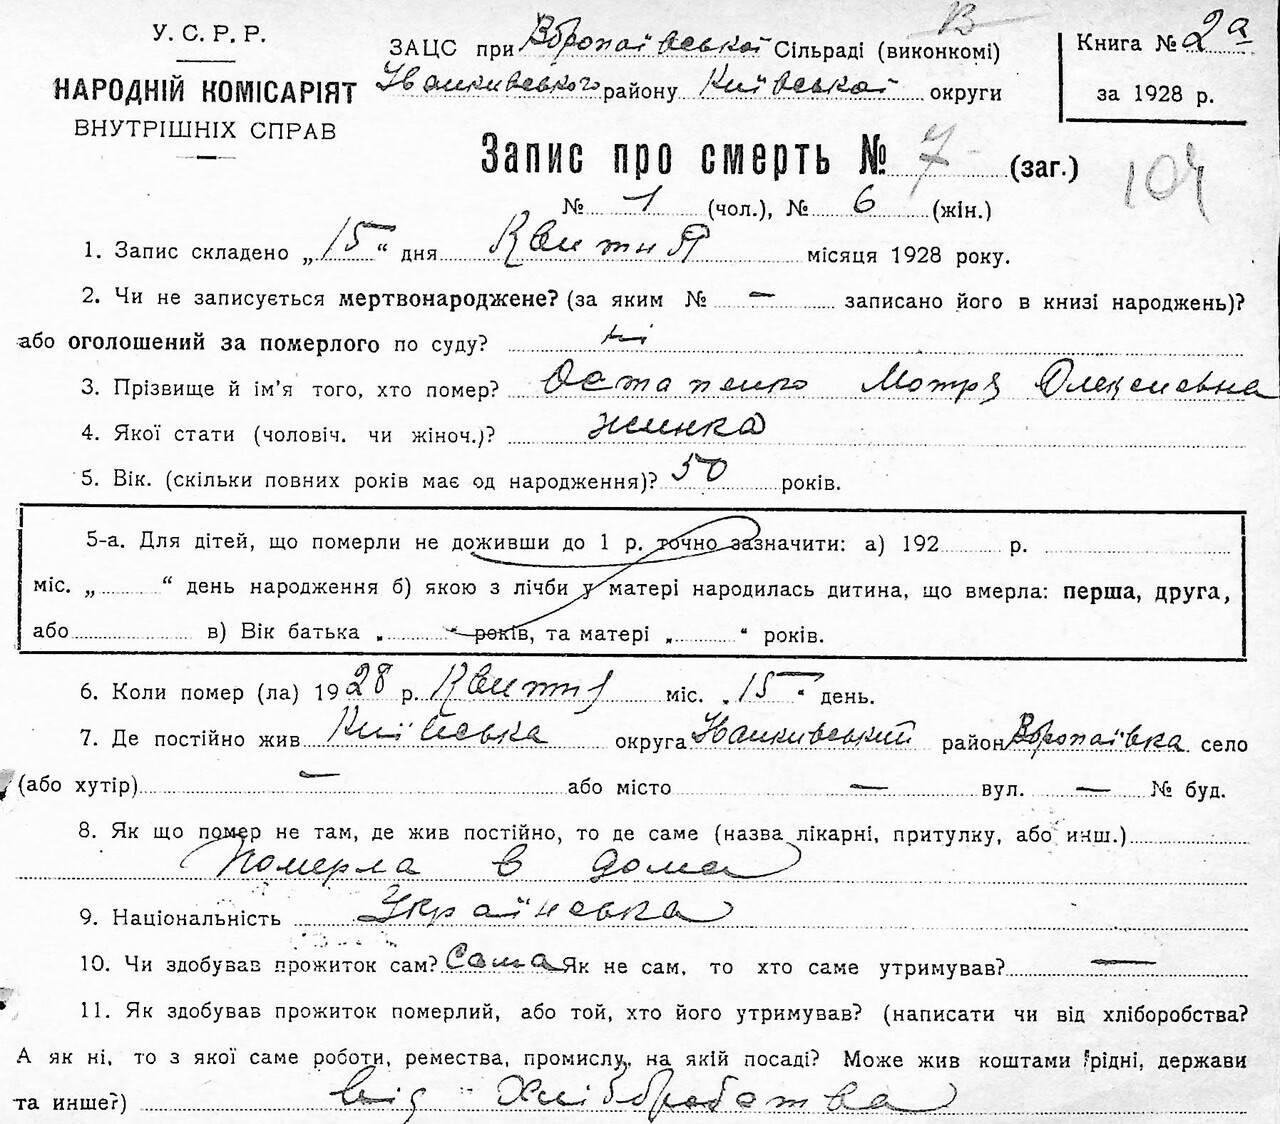 У. С. Р. Р.
НАРОДНІЙ КОМІСАРІЯТ
ВНУТРІШНІХ СПРАВ
В
ЗАЦС при Воропаївської Сільраді (виконкомі)
Іванкивського району Київської округи
Книга № 2а
за 1928 р.
Запис про смерть № 7 (заг.)
104
№ 1 (чол.), № 6 (жін.)
1. Запис складено „15“ дня Квитня місяця 1928 року.
2. Чи не записується мертвонароджене? (за яким № — записано його в книзі народжень)?
або оголошений за померлого по суду? ні
3. Прізвище й ім'я того, хто помер? Остапенко Мотря Олексієвна
4. Якої стати (чоловіч. чи жіноч.)? жинка
5. Вік. (скільки повних років має од народження)? 50 років.
5-а. Для дітей, що померли не доживши до 1 р. точно зазначити: а) 192 р.
міс. „ “ день народження б) якою з лічби у матері народилась дитина, що вмерла: перша, друга,
або в) Вік батька „ “ років, та матері „ “ років.
6. Коли помер (ла) 1928 р. Квитня міс. „15“ день.
7. Де постійно жив Київська округа Іванкивський район Воропаївка село
(або хутір) — або місто — вул. — № буд.
8. Як що помер не там, де жив постійно, то де саме (назва лікарні, притулку, або инш.)
Померла в дома
9. Національність Українська
10. Чи здобував прожиток сам? Сама Як не сам, то хто саме утримував? —
11. Як здобував прожиток померлий, або той, хто його утримував? (написати чи від хліборобства?
А як ні, то з якої саме роботи, ремества, промислу, на якій посаді? Може жив коштами рідні, держави
та инше?) від Хліборобства